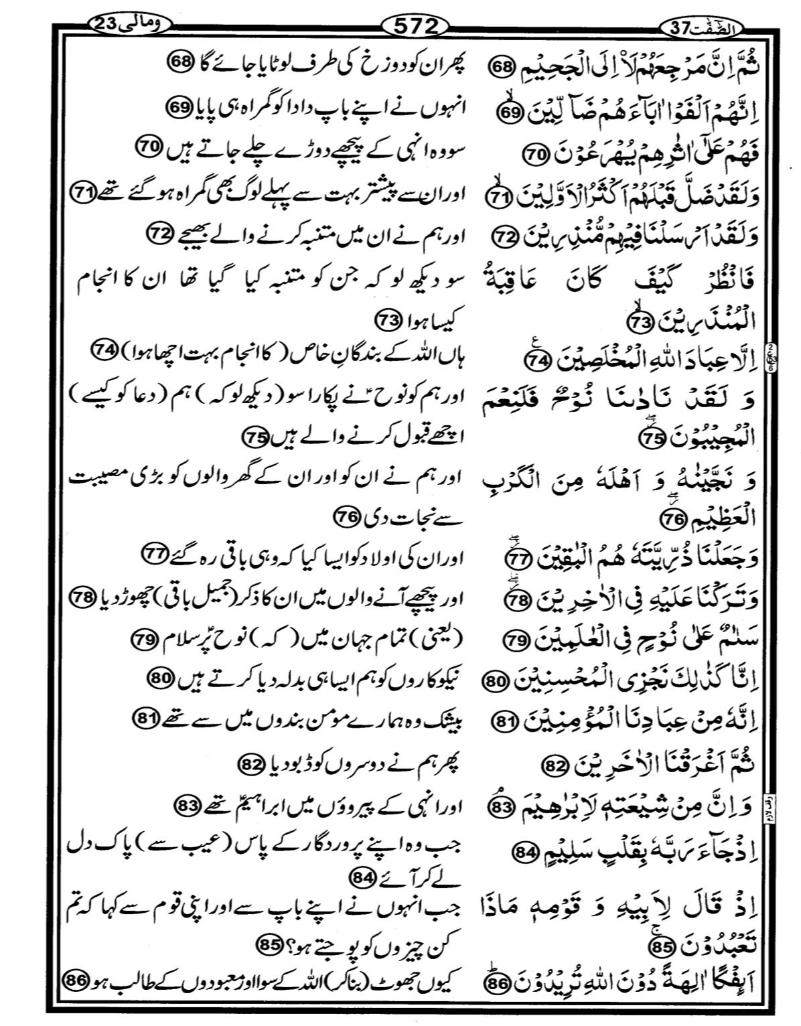 الصّٰفّٰت 37 572 ومالی 23
ثُمَّ اِنَّ مَرْجِعَهُمْ لَاۡ اِلَى الْجَحِيْمِ 68 پھر ان کو دوزخ کی طرف لوٹایا جائے گا 68
اِنَّهُمْ اَلْفَوْا اٰبَآءَهُمْ ضَآلِّيْنَ 69 انہوں نے اپنے باپ دادا کو گمراہ ہی پایا 69
فَهُمْ عَلٰٓى اٰثٰرِهِمْ يُهْرَعُوْنَ 70 سو وہ انہی کے پیچھے دوڑے چلے جاتے ہیں 70
وَلَقَدْ ضَلَّ قَبْلَهُمْ اَكْثَرُ الْاَوَّلِيْنَ 71 اور ان سے پیشتر بہت سے پہلے لوگ بھی گمراہ ہوگئے تھے 71
وَلَقَدْ اَرْسَلْنَا فِيْهِمْ مُّنْذِرِيْنَ 72 اور ہم نے ان میں متنبہ کرنے والے بھیجے 72
فَانْظُرْ كَيْفَ كَانَ عَاقِبَةُ سو دیکھ لو کہ جن کو متنبہ کیا گیا تھا ان کا انجام
الْمُنْذَرِيْنَ 73 کیسا ہوا 73
اِلَّا عِبَادَ اللّٰهِ الْمُخْلَصِيْنَ 74 ہاں اللہ کے بندگانِ خاص (کا انجام بہت اچھا ہوا) 74
وَ لَقَدْ نَادٰىنَا نُوْحٌ فَلَنِعْمَ اور ہم کو نوحؑ نے پکارا سو (دیکھ لو کہ) ہم (دعا کو کیسے)
الْمُجِيْبُوْنَ 75 اچھے قبول کرنے والے ہیں 75
وَ نَجَّيْنٰهُ وَ اَهْلَهٗ مِنَ الْكَرْبِ اور ہم نے ان کو اور ان کے گھر والوں کو بڑی مصیبت
الْعَظِيْمِ 76 سے نجات دی 76
وَجَعَلْنَا ذُرِّيَّتَهٗ هُمُ الْبٰقِيْنَ 77 اور ان کی اولاد کو ایسا کیا کہ وہی باقی رہ گئے 77
وَتَرَكْنَا عَلَيْهِ فِى الْاٰخِرِيْنَ 78 اور پیچھے آنے والوں میں ان کا ذکر (جمیل باقی) چھوڑ دیا 78
سَلٰمٌ عَلٰى نُوْحٍ فِى الْعٰلَمِيْنَ 79 (یعنی) تمام جہان میں (کہ) نوحؑ پر سلام 79
اِنَّا كَذٰلِكَ نَجْزِى الْمُحْسِنِيْنَ 80 نیکوکاروں کو ہم ایسا ہی بدلہ دیا کرتے ہیں 80
اِنَّهٗ مِنْ عِبَادِنَا الْمُؤْمِنِيْنَ 81 بیشک وہ ہمارے مومن بندوں میں سے تھے 81
ثُمَّ اَغْرَقْنَا الْاٰخَرِيْنَ 82 پھر ہم نے دوسروں کو ڈبو دیا 82
وَاِنَّ مِنْ شِيْعَتِهٖ لَاِبْرٰهِيْمَ 83 اور انہی کے پیروؤں میں ابراہیمؑ تھے 83
وقف لازم
اِذْ جَآءَ رَبَّهٗ بِقَلْبٍ سَلِيْمٍ 84 جب وہ اپنے پروردگار کے پاس (عیب سے) پاک دل
لے کر آئے 84
اِذْ قَالَ لِاَبِيْهِ وَ قَوْمِهٖ مَاذَا جب انہوں نے اپنے باپ سے اور اپنی قوم سے کہا کہ تم
تَعْبُدُوْنَ 85 کن چیزوں کو پوجتے ہو؟ 85
اَئِفْكًا اٰلِهَةً دُوْنَ اللّٰهِ تُرِيْدُوْنَ 86 کیوں جھوٹ (بنا کر) اللہ کے سوا اور معبودوں کے طالب ہو 86